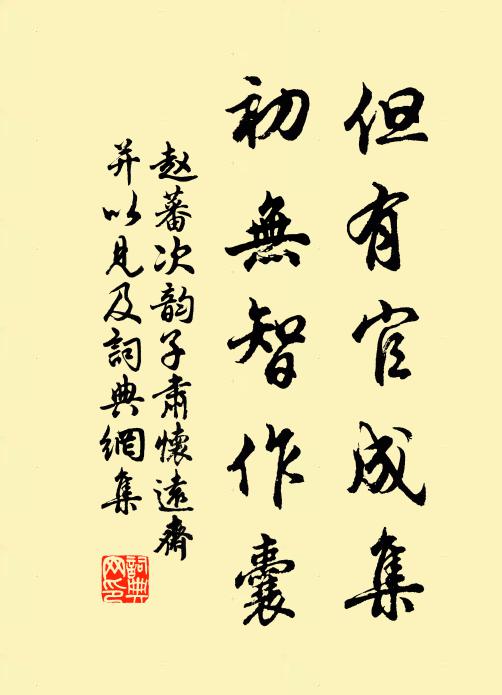 但有官成集
初無智作囊
赵蕃次韵子肃懷遠齋
并以見及詞典網集
詞典
网印